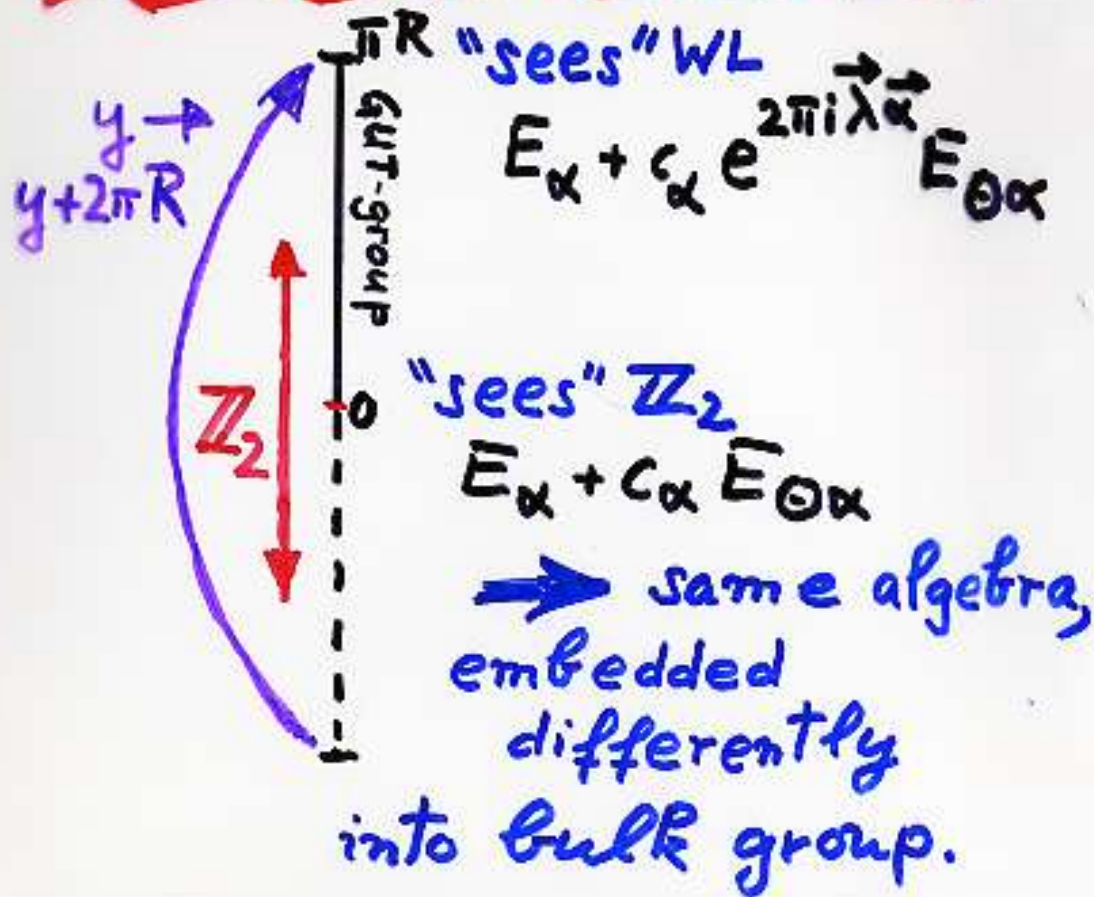 πR "sees" WL
y → y+2πR
GUT-group
E_α + c_α e^{2πi λ⃗ α⃗} E_{Θα}
ℤ₂
0 "sees" ℤ₂
E_α + c_α E_{Θα}
→ same algebra,
embedded
differently
into bulk group.